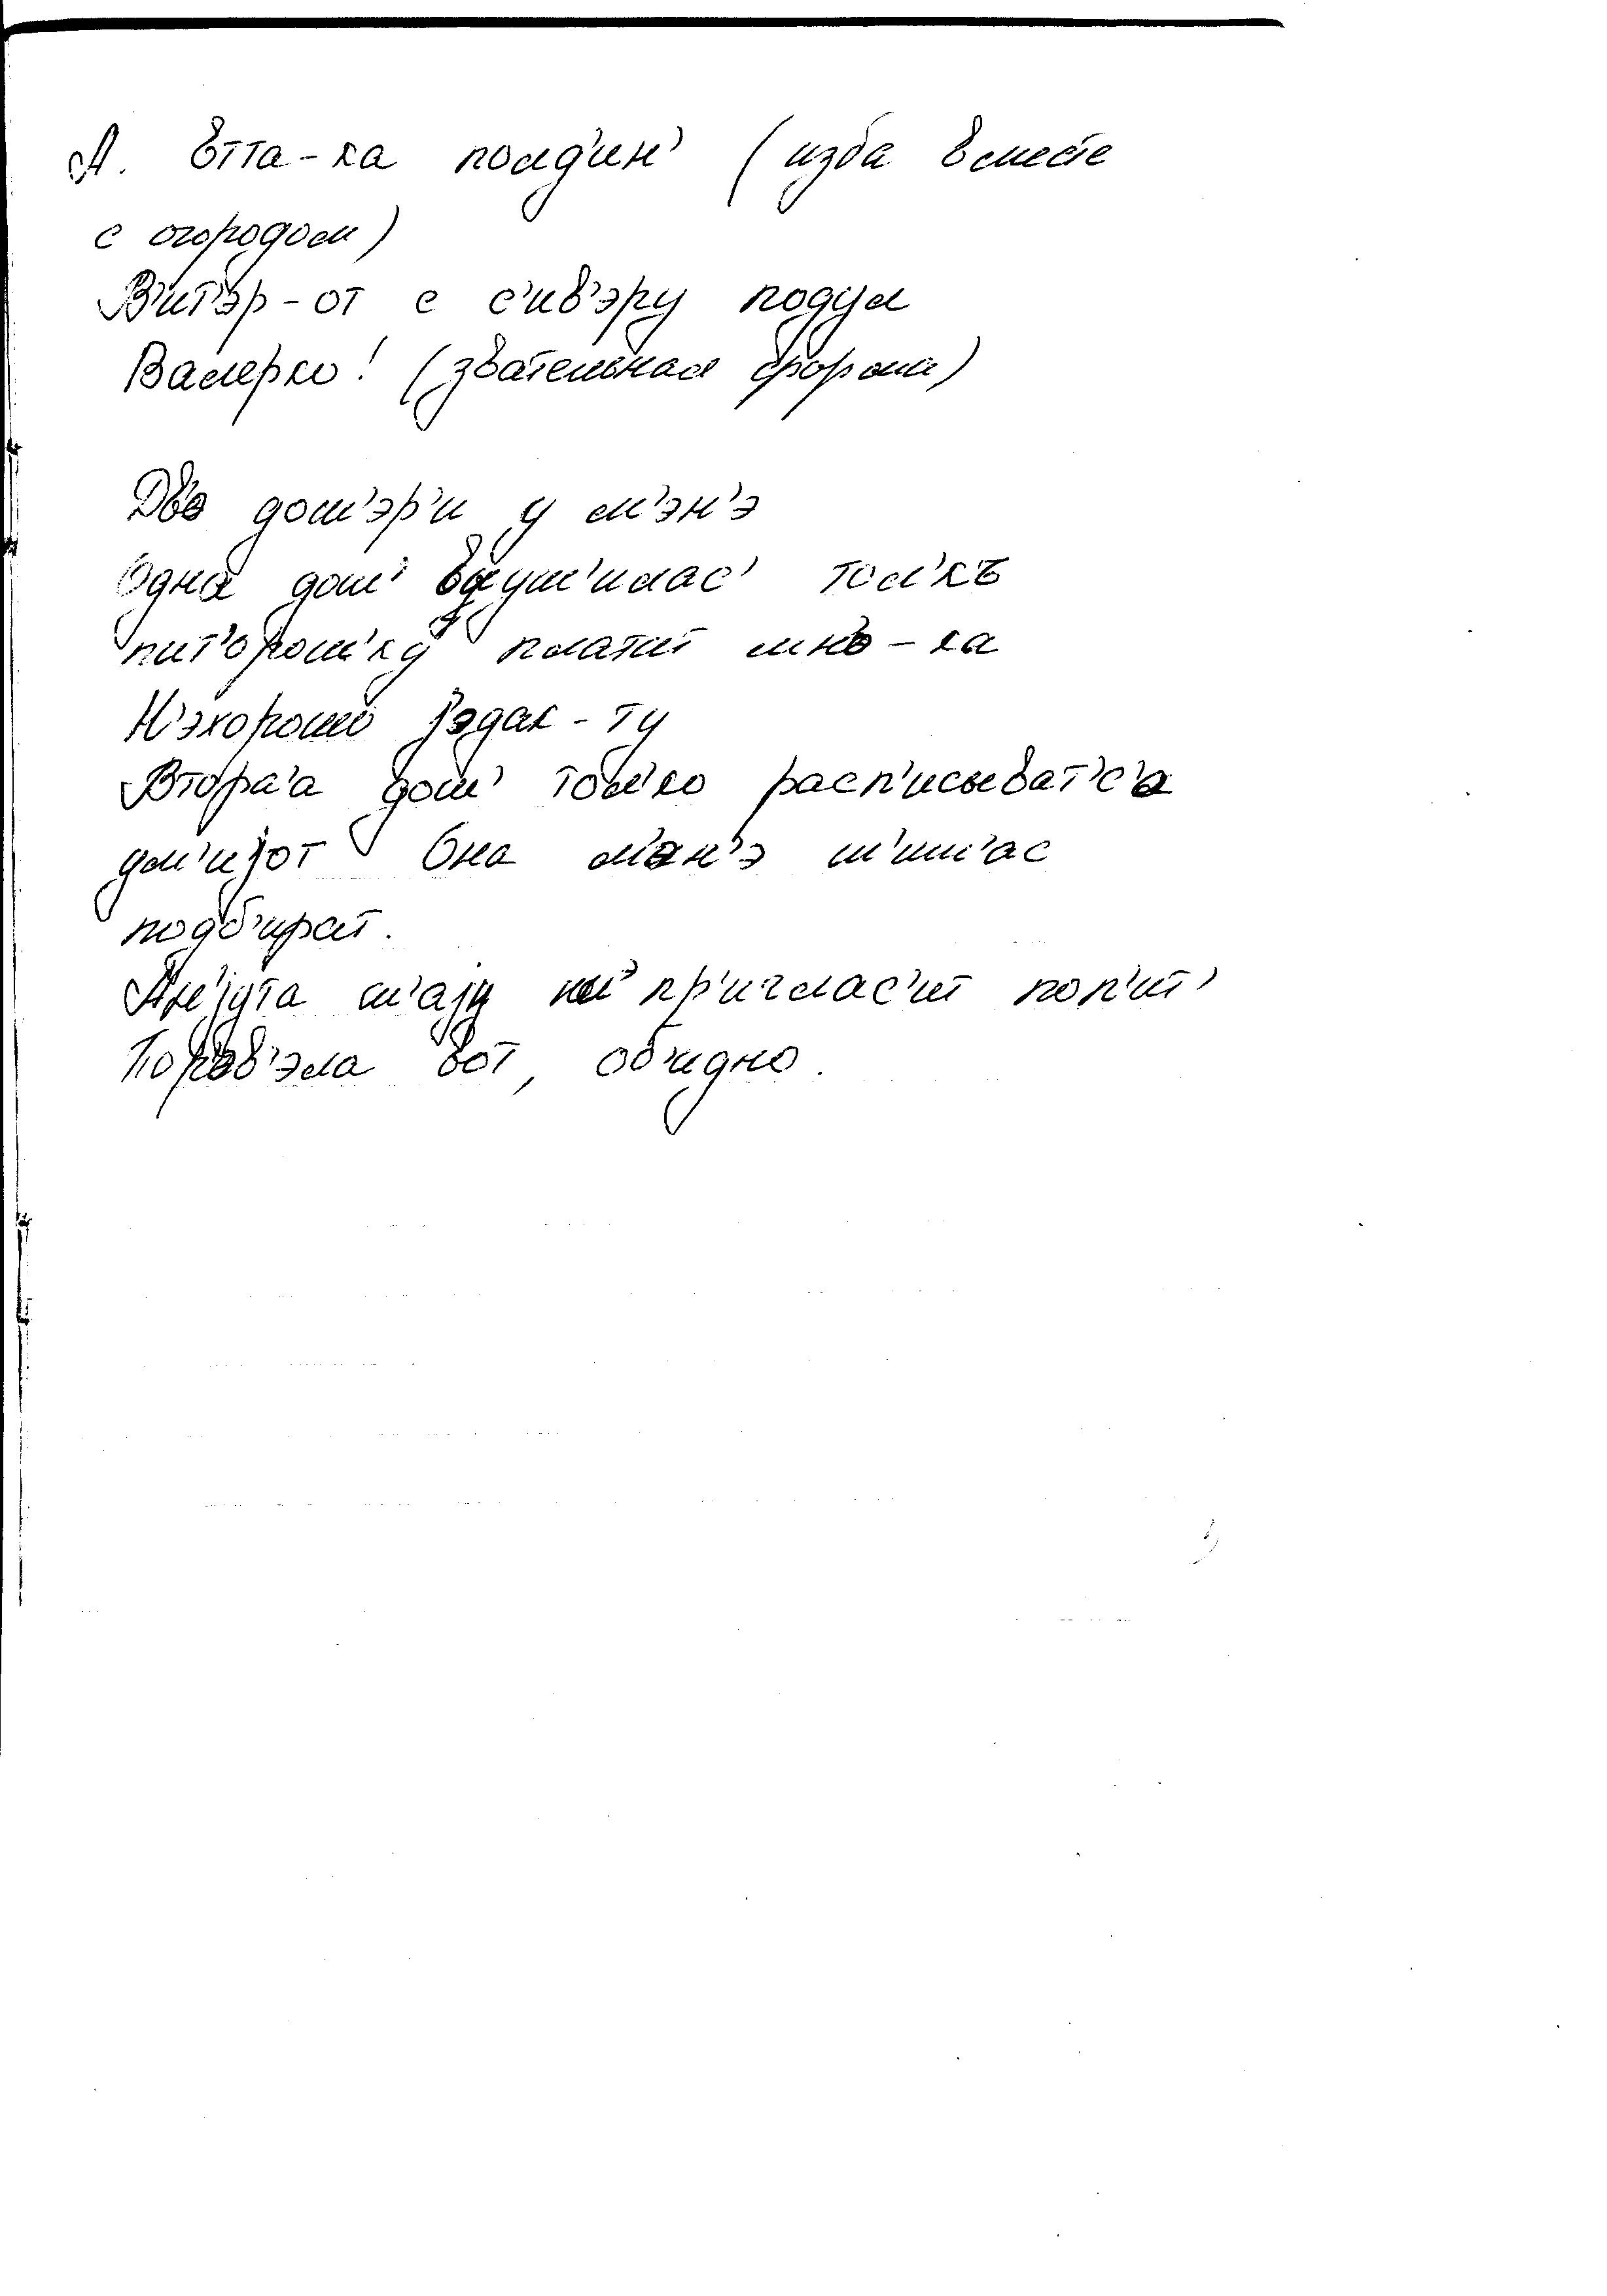 А. Етта-ка полд'ин' (изба вместе
с огородом)
В'ит'эр-от с с'ив'эру подул
Валерко! (звательная форма)
Дв'э дош'эр'и у м'эн'э
Одна дош' выуш'илас' тол'къ
пит'орош'ку платит мн'э-ка
Н'эхорошо јэдак-ту
Втора'а дош' тол'ко расп'исыват'с'а
ум'ијот Она м'эн'э ш'иш'ас
подб'ират.
Ан'јута ш'ају н'и пр'игласит поп'ит'
Пор'эв'эла вот, об'идно.